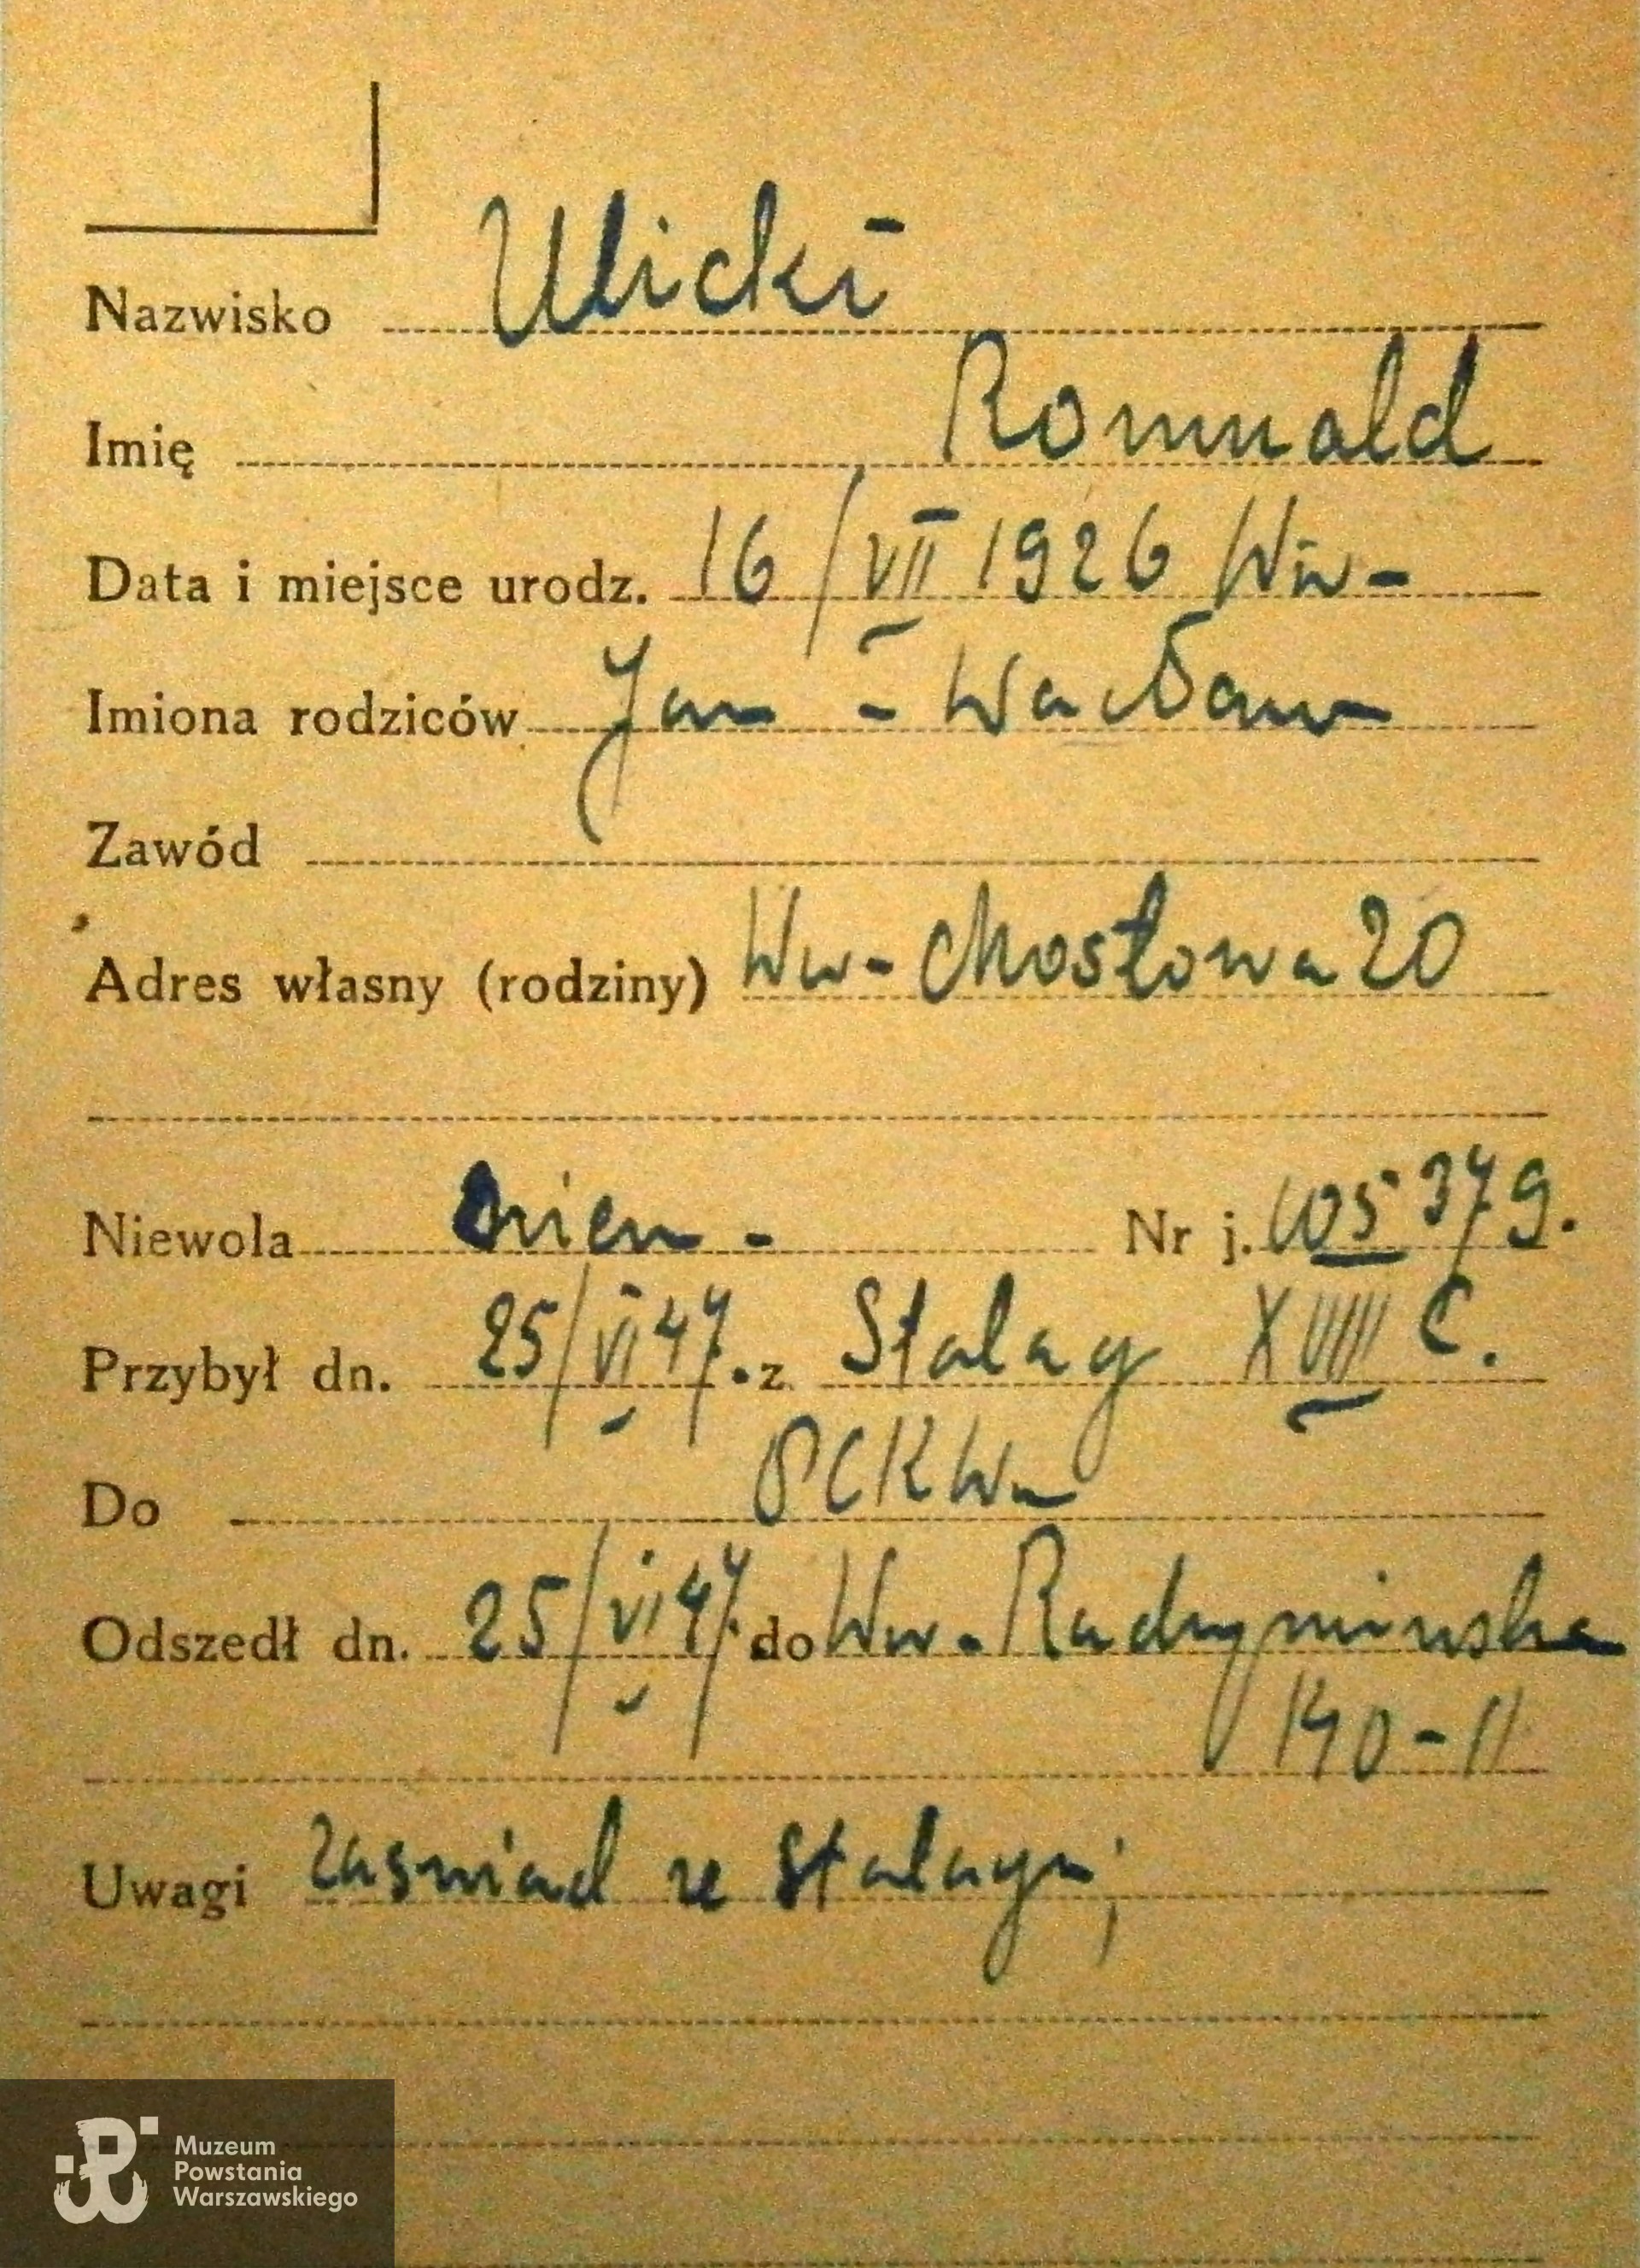 Nazwisko Ulicki
Imię Romuald
Data i miejsce urodz. 16/VII 1926 Ww-
Imiona rodziców Jan - Wacława
Zawód
Adres własny (rodziny) Ww- Mostowa 20
Niewola niem - Nr j. 105379.
Przybył dn. 25/VI 47. z Stalag XVIII C.
Do PCK Ww
Odszedł dn. 25/VI 47. do Ww. Radzymińska
140-11
Uwagi zaświad ze stalagu;
Muzeum
Powstania
Warszawskiego